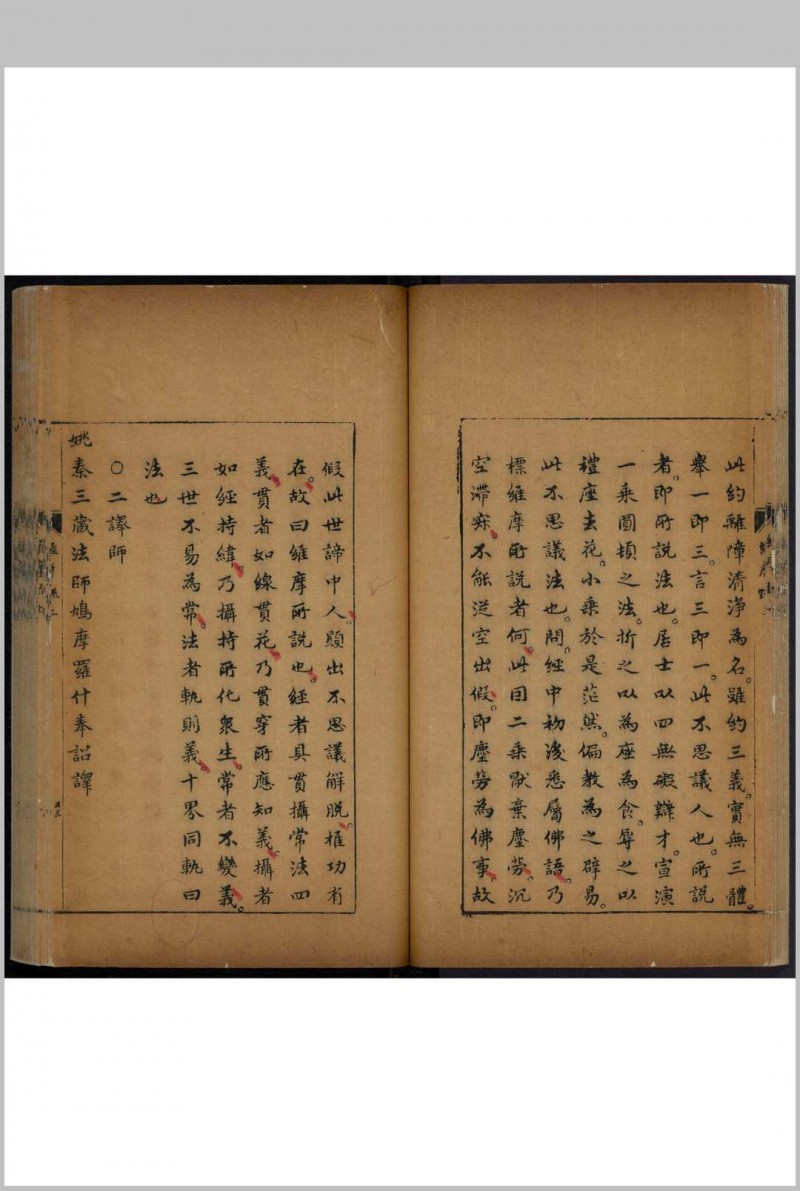 此約離障清淨為名。雖約三義。實無三體。
舉一即三。言三即一。此不思議人也。所說
者。即所說法也。居士以四無礙辯才。宣演
一乘圓頓之法。折之以為座為食。辱之以
禮座去花。小乘於是茫然。偏教為之辟易。
此不思議法也。問。經中初後悉屬佛語。乃
標維摩所說者何。此因二乘厭棄塵勞。沉
空滯寂。不能從空出假。即塵勞為佛事。故
假此世諦中人。顯出不思議解脫。權功有
在。故曰維摩所說也。經者具貫攝常法四
義。貫者如線貫花。乃貫穿所應知義。攝者
如經持緯。乃攝持所化眾生。常者不變義。
三世不易為常。法者軌則義。十界同軌曰
法也
○二譯師
姚秦三藏法師鳩摩羅什奉詔譯